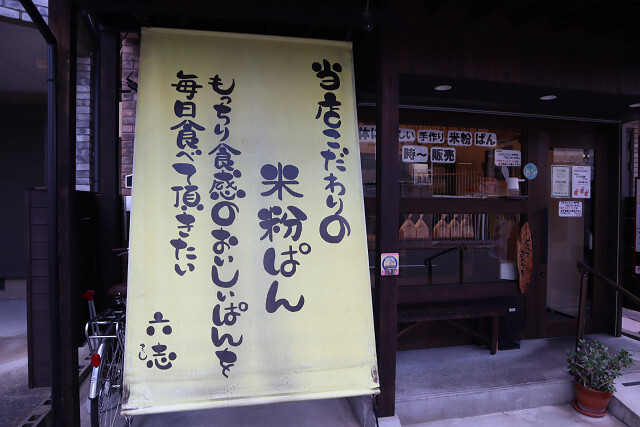 当店こだわりの
米粉ぱん
もっちり食感のおいしいぱんを
毎日食べて頂きたい
六志
体に
しい
手作り
米粉
ぱん
時～
販売